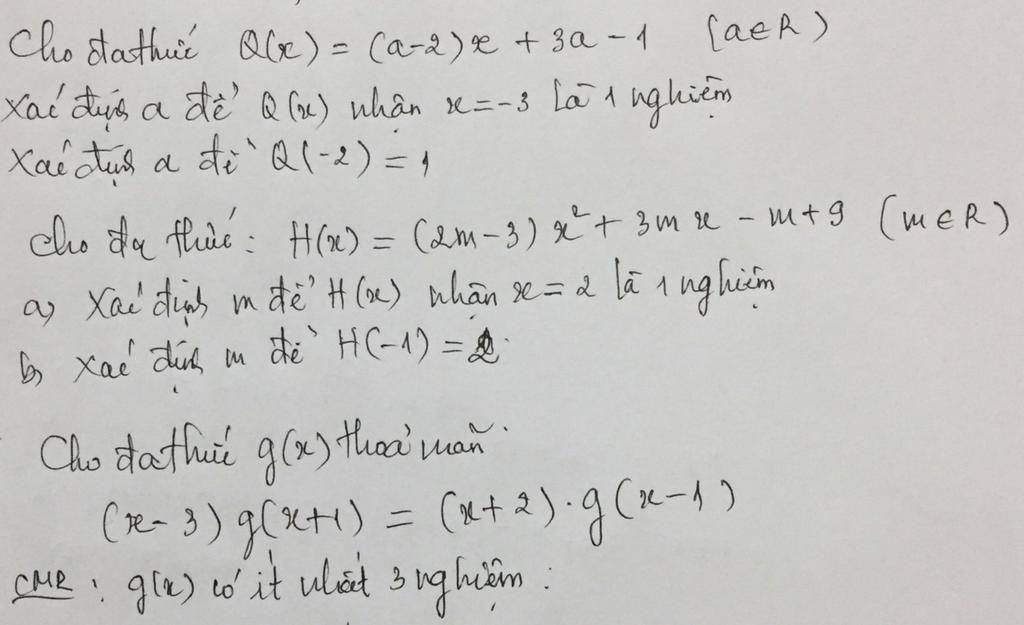 Cho đa thức Q(x) = (a-2)x + 3a - 1 (a∈R)
Xác định a để Q(x) nhận x = -3 là 1 nghiệm
Xác định a để Q(-2) = 1
Cho đa thức: H(x) = (2m-3) x² + 3mx - m + 9 (m∈R)
a) Xác định m để H(x) nhận x = 2 là 1 nghiệm
b) Xác định m để H(-1) = 2.
Cho đa thức g(x) thoả mãn
(x-3) g(x+1) = (x+2) . g(x-1)
CMR : g(x) có ít nhất 3 nghiệm :